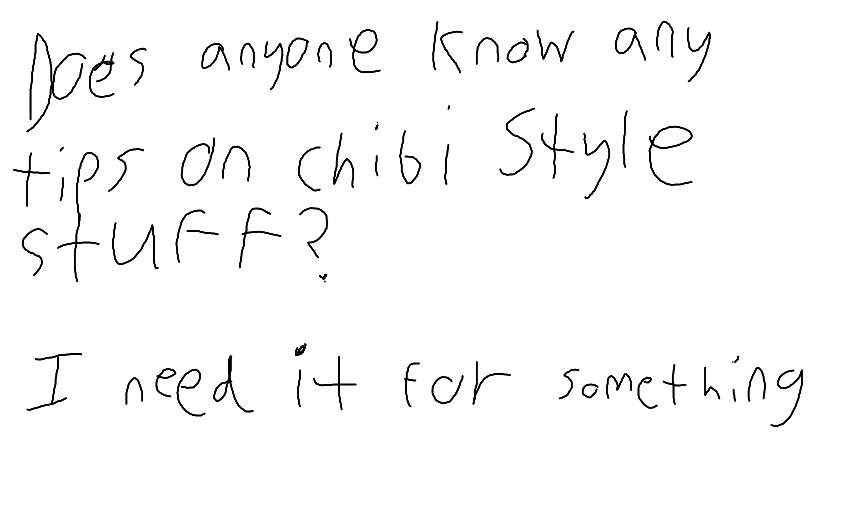 Does anyone know any
tips on chibi style
stuff?
I need it for something